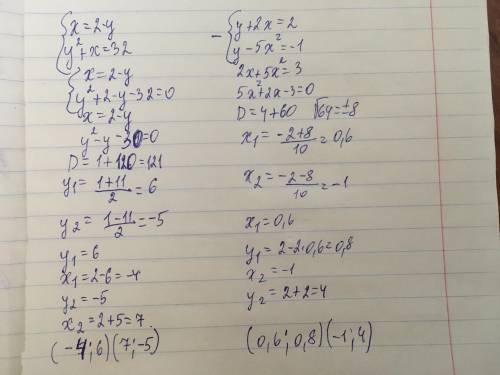 x=2-y
y²+x=32
x=2-y
y²+2-y-32=0
x=2-y
y²-y-30=0
D=1+120=121
y1=(1+11)/2=6
y2=(1-11)/2=-5
y1=6
x1=2-6=-4
y2=-5
x2=2+5=7.
(-4;6)(7;-5)
- y+2x=2
y-5x²=-1
2x+5x²=3
5x²+2x-3=0
D=4+60 √64=±8
x1=(-2+8)/10=0,6
x2=(-2-8)/10=-1
x1=0,6
y1=2-2·0,6=0,8
x2=-1
y2=2+2=4
(0,6;0,8)(-1;4)